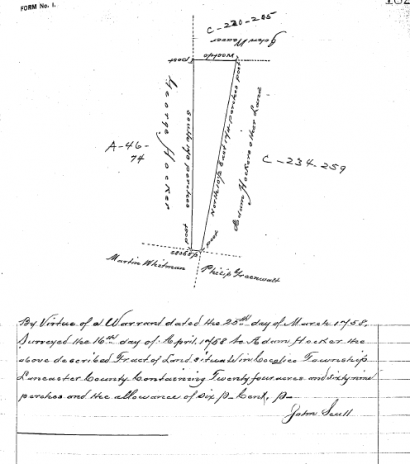 FORM No. 1.
C-230-205
post
A-46-
74
George Hocker
South 170 perches
Adam Hockers other Land
C-234-259
post
post
Martin Whitman
Philip Greenwalt
By Virtue of a Warrant dated the 25th day of March 1758,
Surveyed the 16th day of April 1758 to Adam Hocker the
above described Tract of Land situa in Cocalico Township
Lancaster County Containing Twenty four acres and sixty nine
perches and the allowance of six p. Cent, p.
John Scull